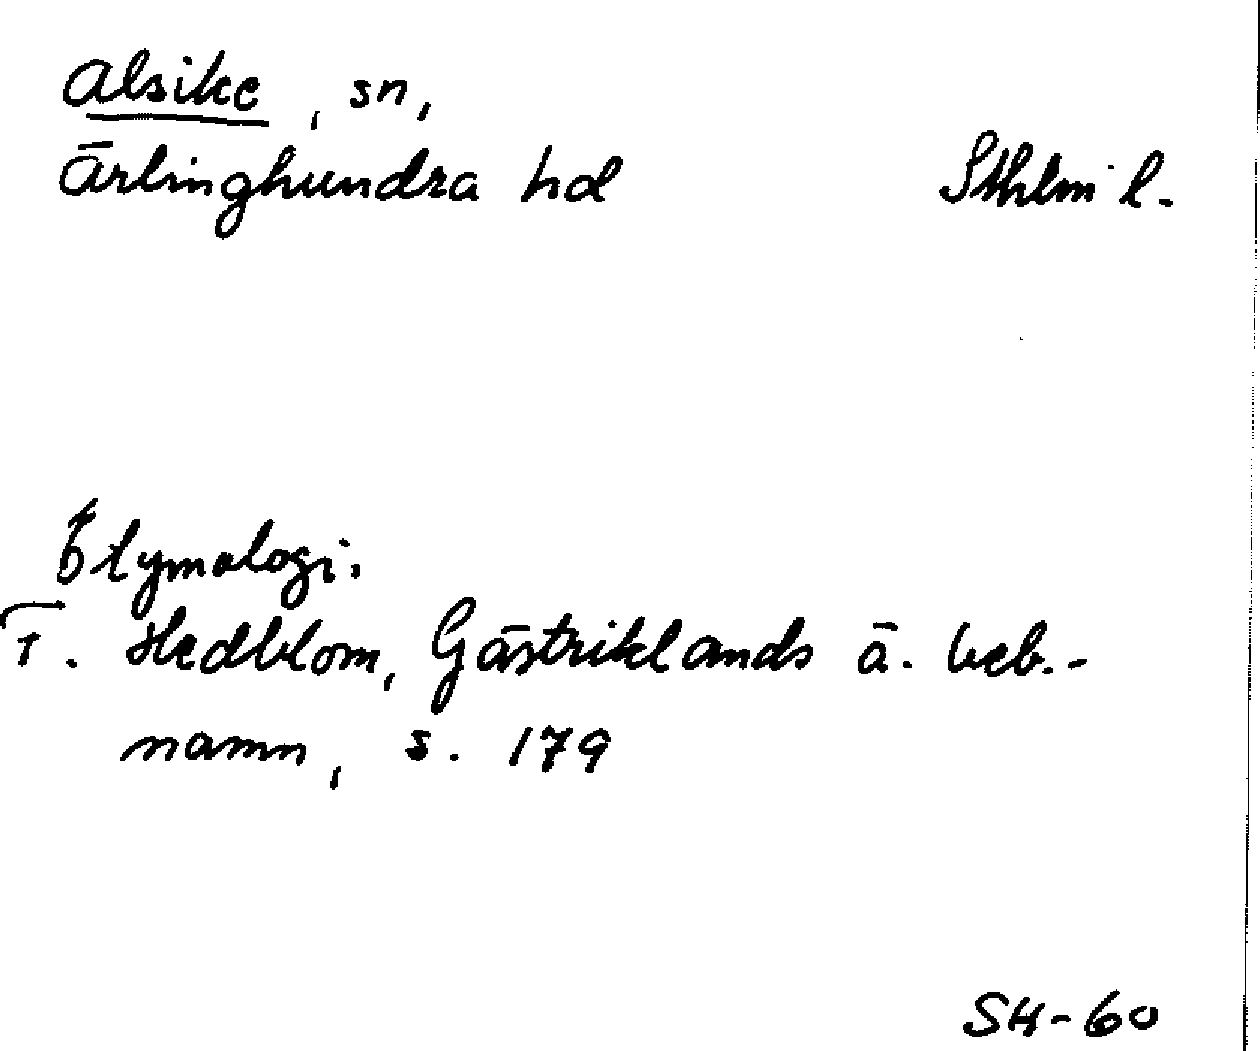 Alsike, sn,
Ärlinghundra hd Sthlm l.
Etymologi.
F. Hedblom, Gästriklands ä. beb.-
namn, s. 179
SH-60